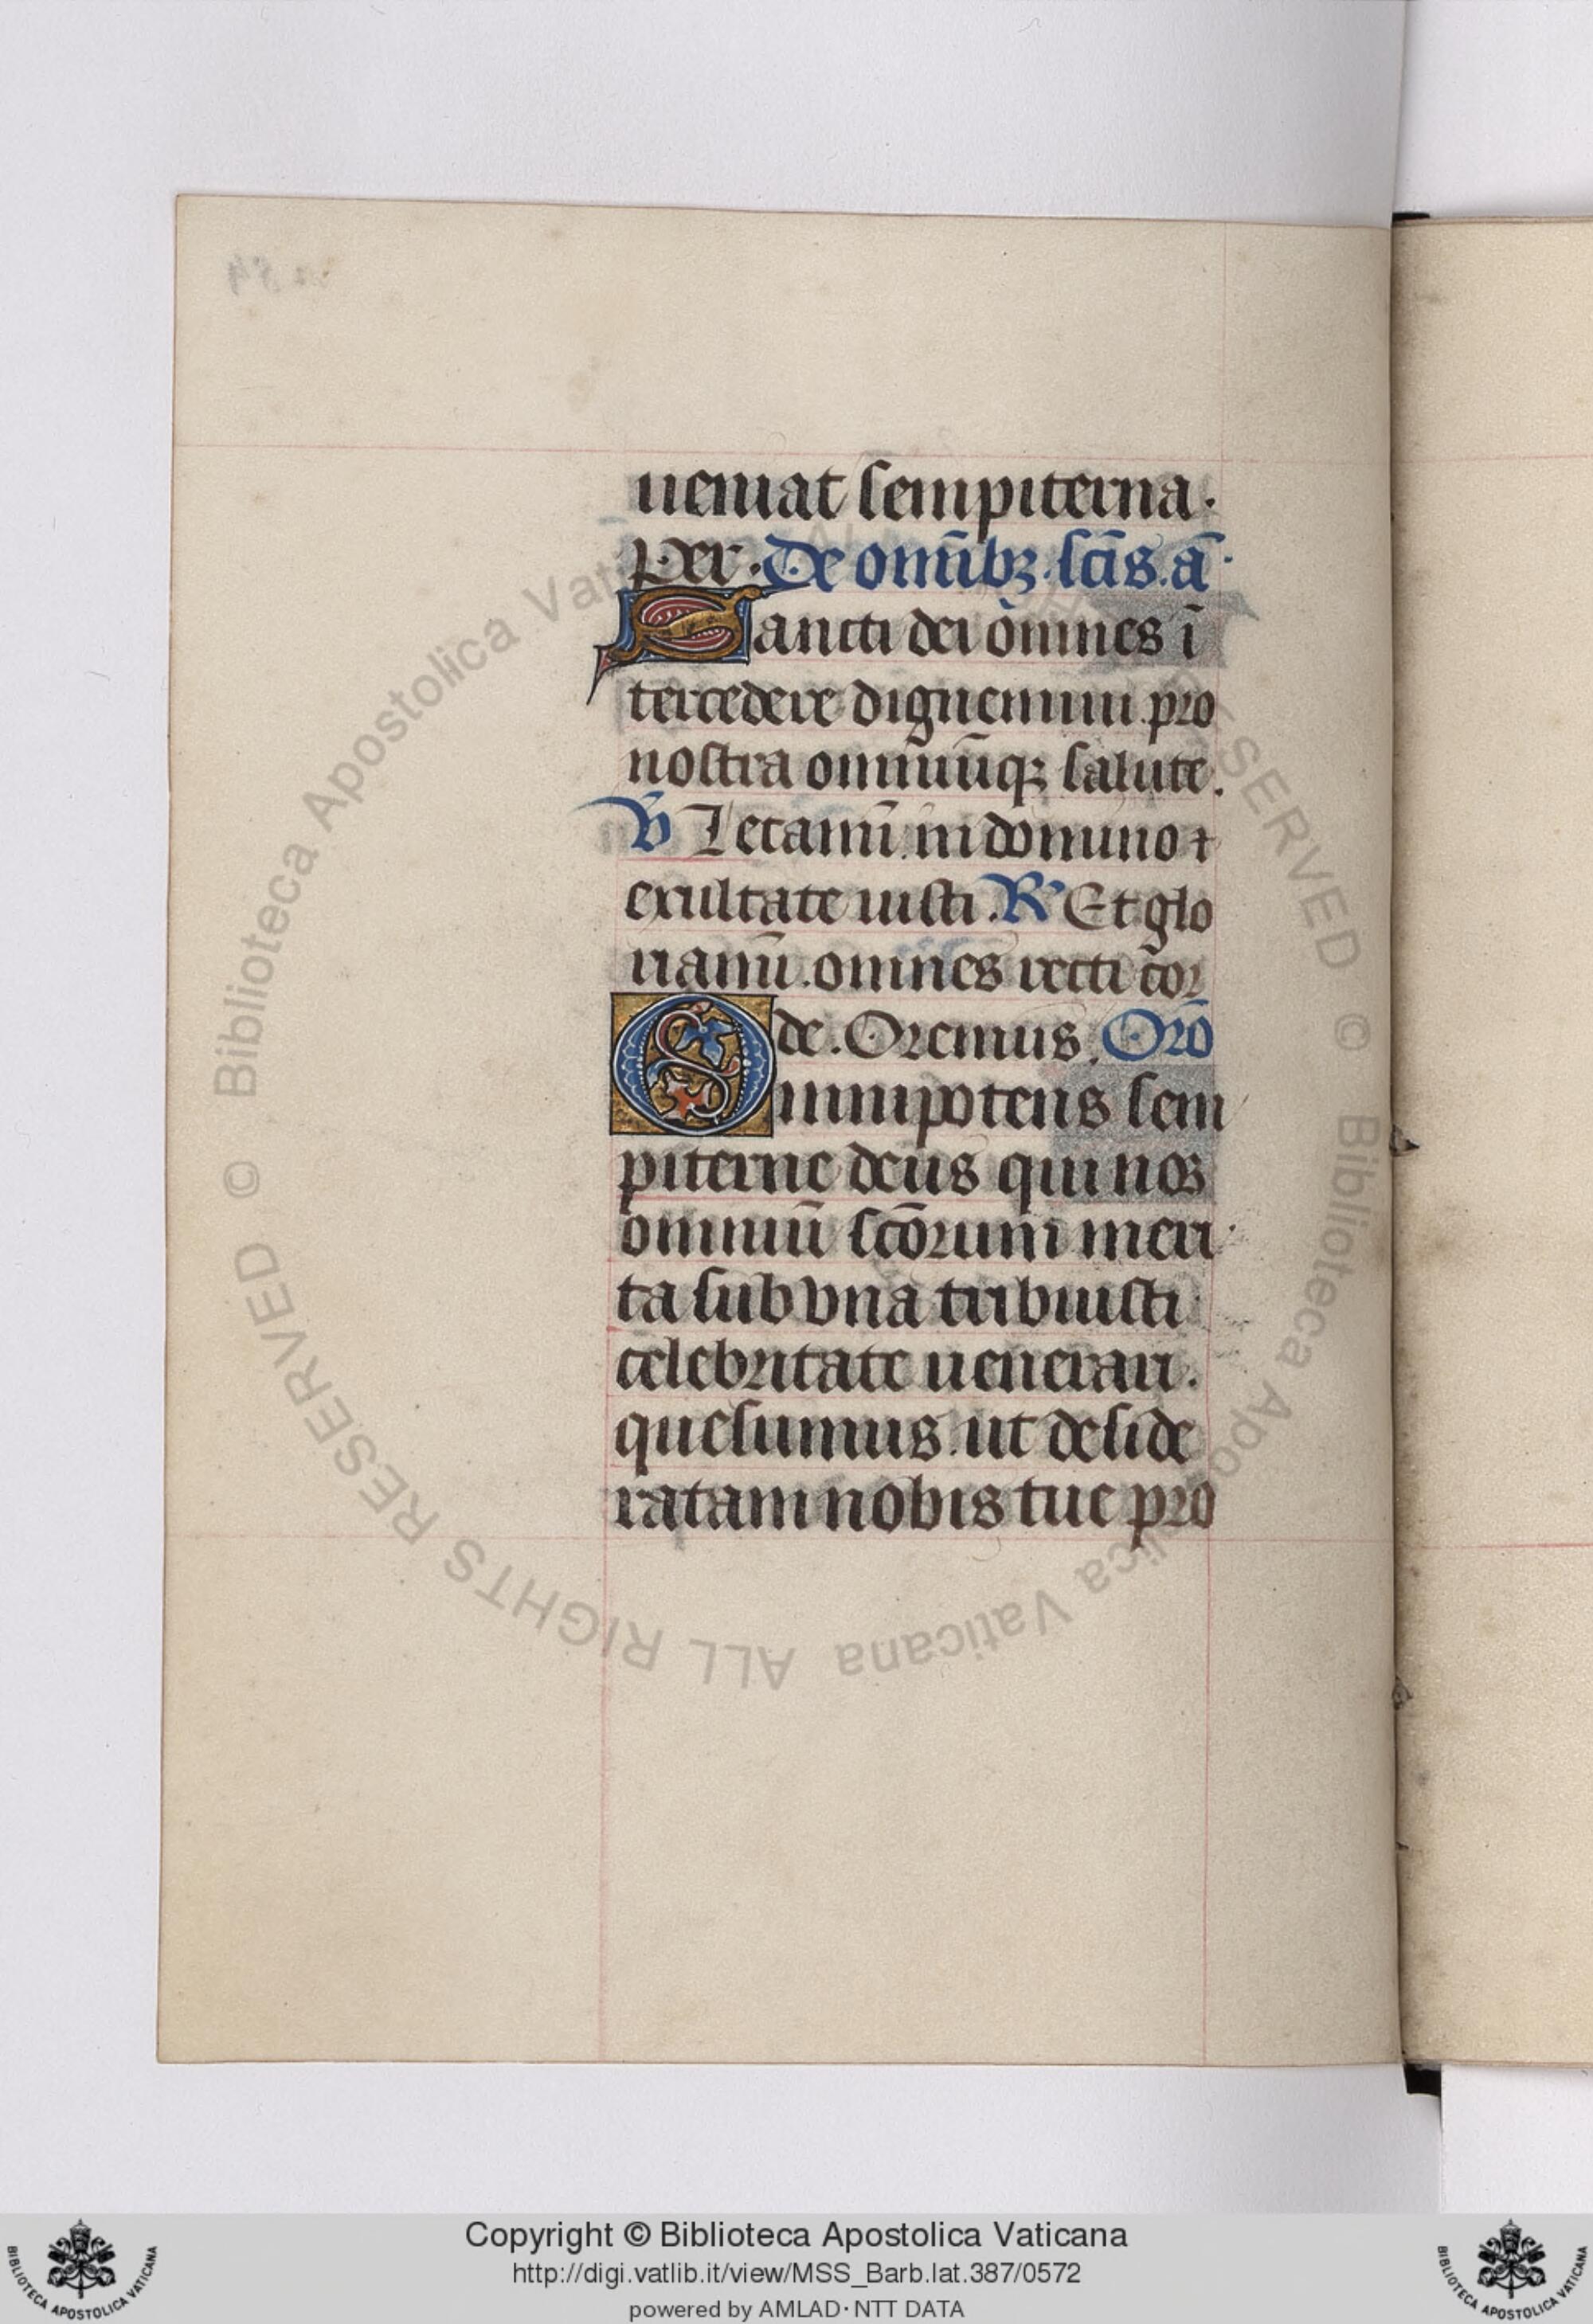 ueniat sempiterna.
Per. De omībꝫ sc̄is. ā
Sancti dei omnes ī
tercedere dignemini pro
nostra omniūqꝫ salute.
℣ Letamī in domino ⁊
exultate iusti. ℟ Et glo
riamī omnes recti cor
de. Oremus. Orō
Omnipotens sem
piterne deus qui nos
omniū sc̄orum meri
ta sub vna tribuisti
celebritate uenerari.
quesumus ut deside
ratam nobis tue pro
© Biblioteca Apostolica Vaticana ALL RIGHTS RESERVED © Biblioteca Apostolica Vaticana ALL RIGHTS RESERVED
Copyright © Biblioteca Apostolica Vaticana
http://digi.vatlib.it/view/MSS_Barb.lat.387/0572
powered by AMLAD·NTT DATA
BIBLIOTECA APOSTOLICA VATICANA
BIBLIOTECA APOSTOLICA VATICANA